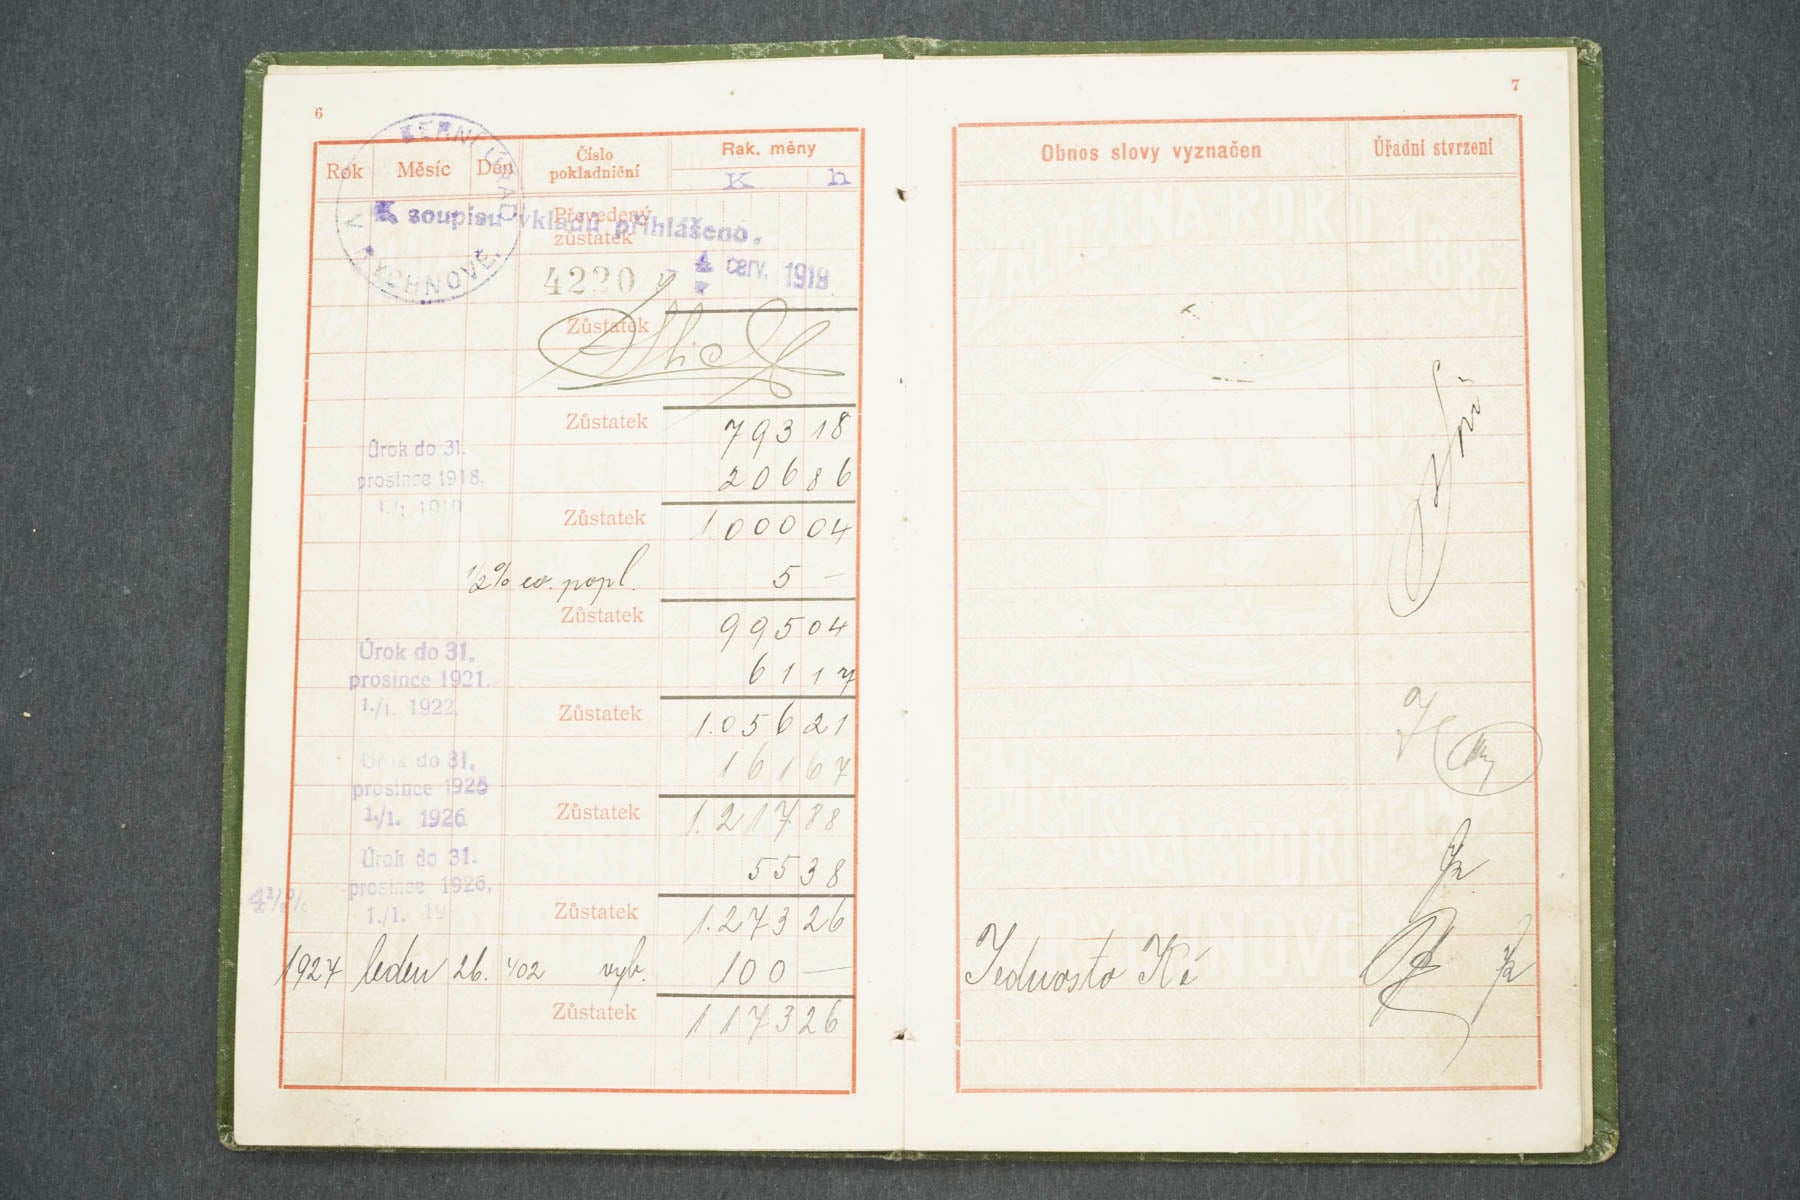 6
Rok Měsíc Den Číslo pokladniční Rak. měny
K h
BERNÍ ÚŘAD V RYCHNOVĚ
Převedený
K soupisu vkladů přihlášeno.
zůstatek
4220 4 červ. 1919
Zůstatek
Zůstatek 793 18
Úrok do 31.
prosince 1918. 206 86
1./1. 1919
Zůstatek 1.000 04
1/2% popl. 5 —
Zůstatek 995 04
Úrok do 31.
prosince 1921. 61 17
1./1. 1922.
Zůstatek 1.056 21
Úrok do 31.
prosince 1925 161 67
1./1. 1926
Zůstatek 1.217 88
Úrok do 31.
4½% prosince 1926. 55 38
1./1. 19
Zůstatek 1.273 26
1927 leden 26. 402 vyb. 100 —
Zůstatek 1173 26
7
Obnos slovy vyznačen Úřadní stvrzení
ZALOŽENA ROKU 1887
MĚSTSKÁ SPOŘITELNA
Jednosto Kč